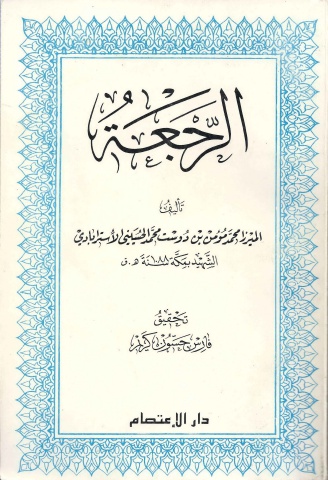 الرَّجعَةُ
تأليفُ
الميرزا محمد مؤمن بن دوست محمد الحسيني الأسترابادي
الشهيد بمكة سنة ١٠٨٨ هـ.ق
تحقيق
فارس حسون كريم
دار الإعتصام